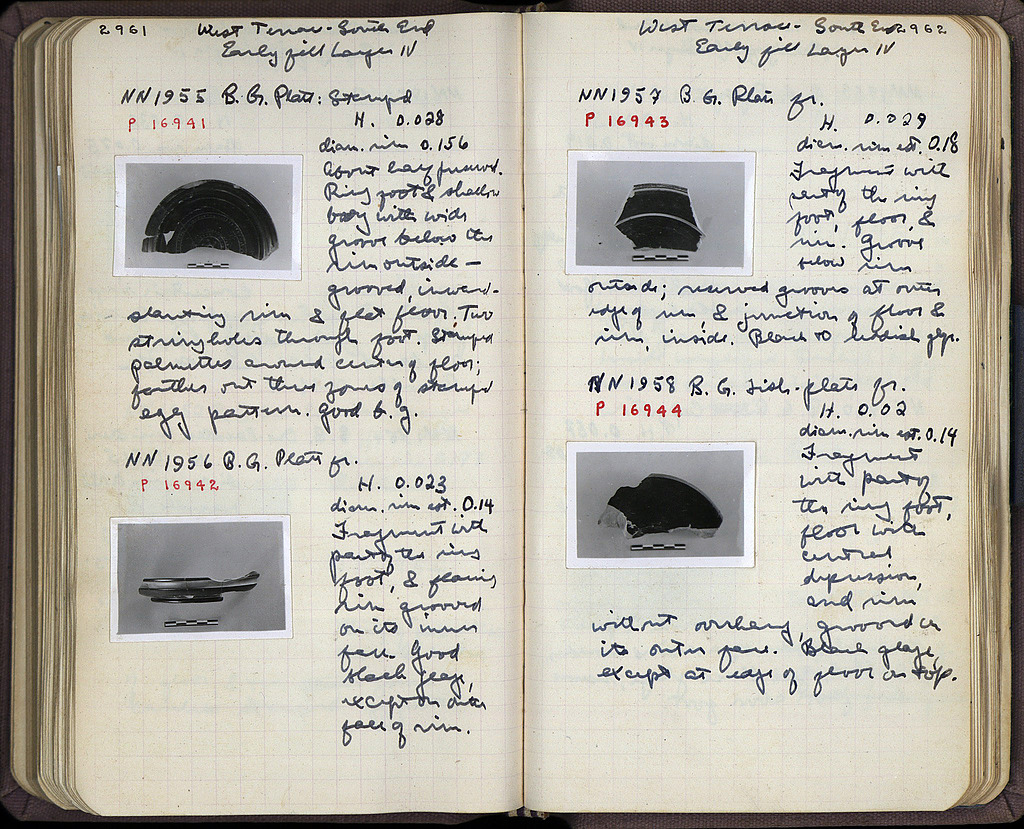 2961
West Terrace - South End
Early fill Layer IV
NN1955 B.G. Plate: Stamped
P 16941
H. 0.028
diam. rim 0.156
About half preserved.
Ring foot & shallow
body with wide
groove below the
rim outside —
grooved, inward-
slanting rim & flat floor. Two
string holes through foot. Stamped
palmettes around center of floor;
farther out three zones of stamped
egg pattern. Good b.g.
NN 1956 B.G. Plate fr.
P 16942
H. 0.023
diam. rim est. 0.14
Fragment with
part of the ring
foot, & flaring
rim grooved
on its inner
face. Good
black glaze,
except on outer
face of rim.
West Terrace - South End 2962
Early fill Layer IV
NN1957 B.G. Plate fr.
P 16943
H. 0.029
diam. rim est. 0.18
Fragment with
part of the ring
foot, floor, &
rim. Groove
below rim
outside; reserved grooves at outer
edge of rim, & junction of floor &
rim, inside. Black to reddish glaze.
NN1958 B.G. Fish-plate fr.
P 16944
H. 0.02
diam. rim est. 0.14
Fragment
with part of
the ring foot,
floor with
central
depression,
and rim
without overhang, grooved on
its outer face. Black glaze,
except at edge of floor on top.